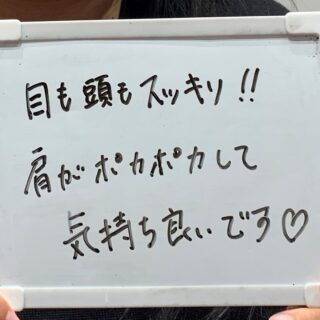 目も頭もスッキリ!!
肩がポカポカして
気持ち良いです♡